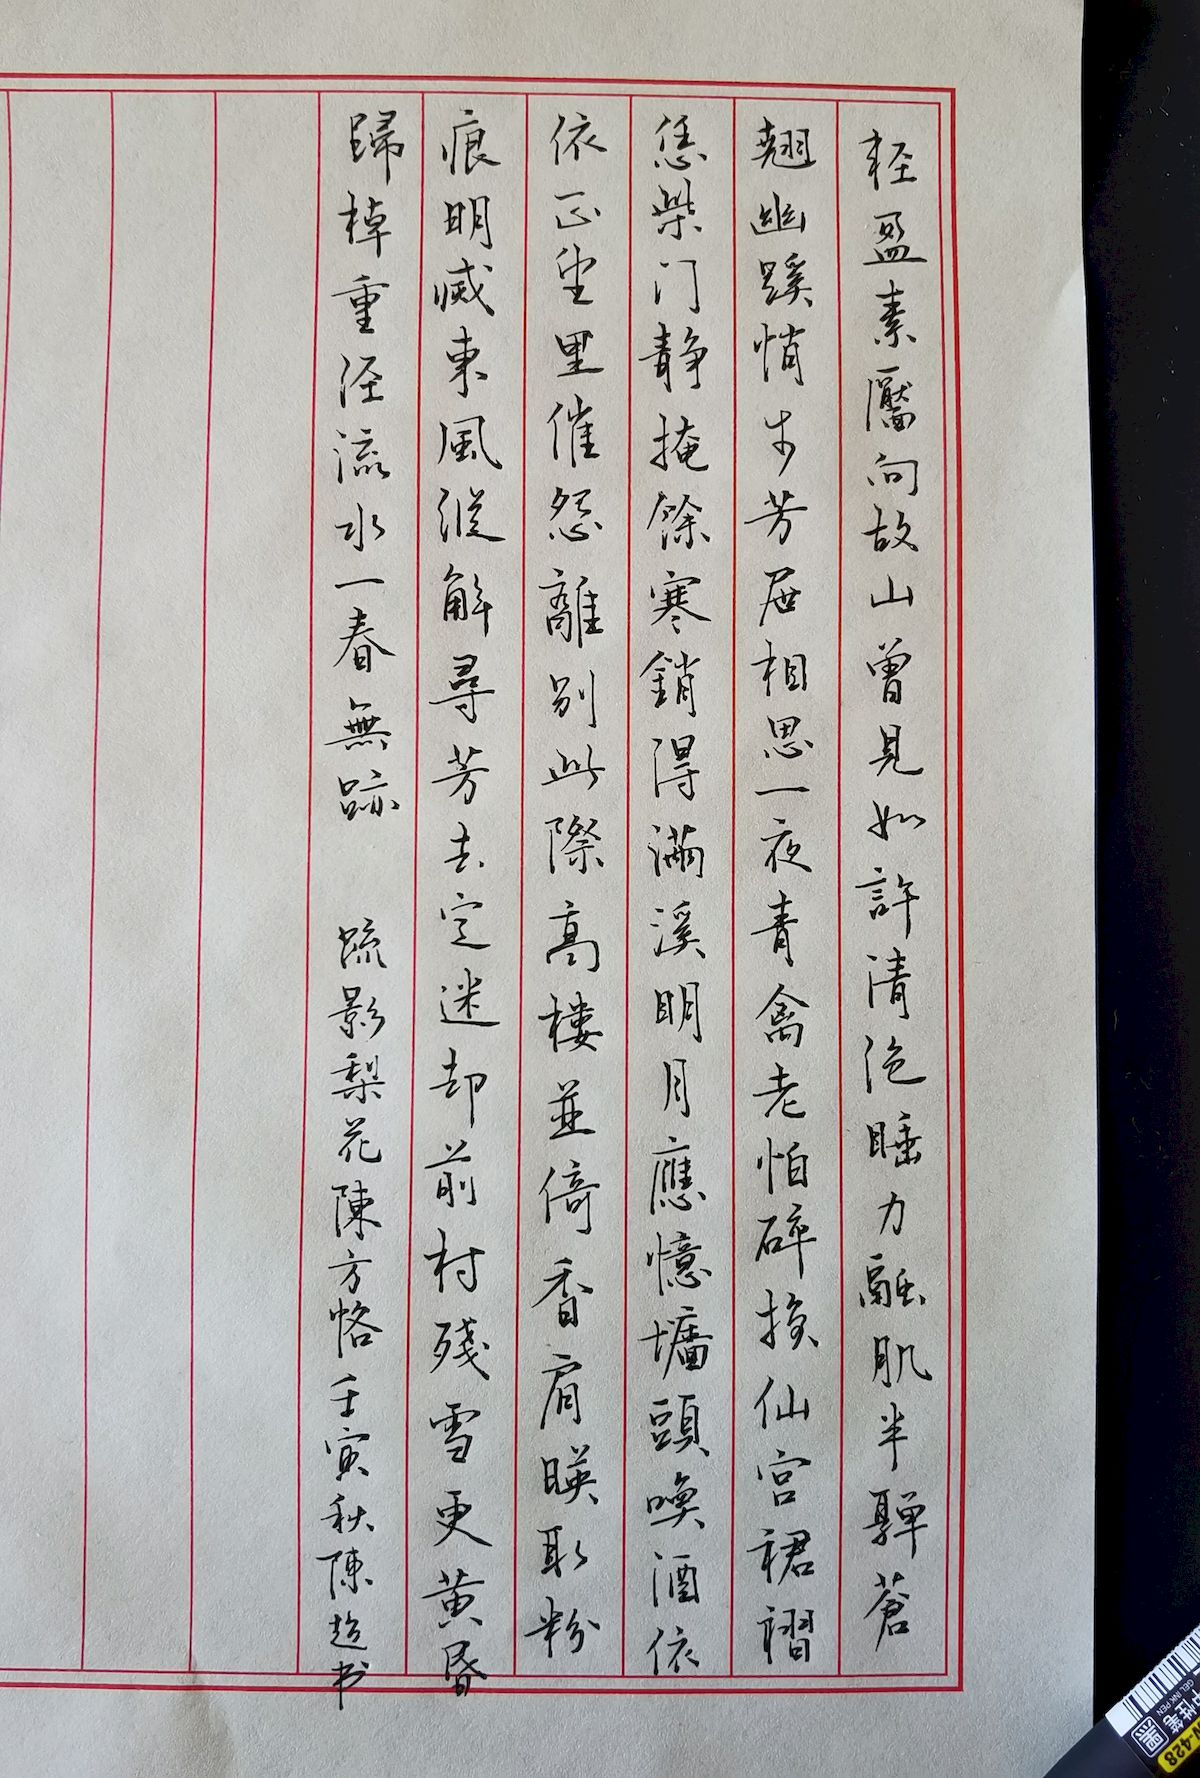 輕盈素靨向故山曾見如許清絕睡力融肌半嚲蒼
翹幽蹊悄步芳屜相思一夜青禽老怕碎損仙宮裙褶
恁柴门静掩餘寒銷得滿溪明月應憶壚頭喚酒依
依正望里催怨離别此際高樓並倚香肩暎取粉
痕明滅東風縱解尋芳去定迷却前村殘雪更黄昏
歸棹重泾流水一春無跡 疏影梨花陳方恪壬寅秋陳超书
中性笔
GEL INK PEN
黑
428